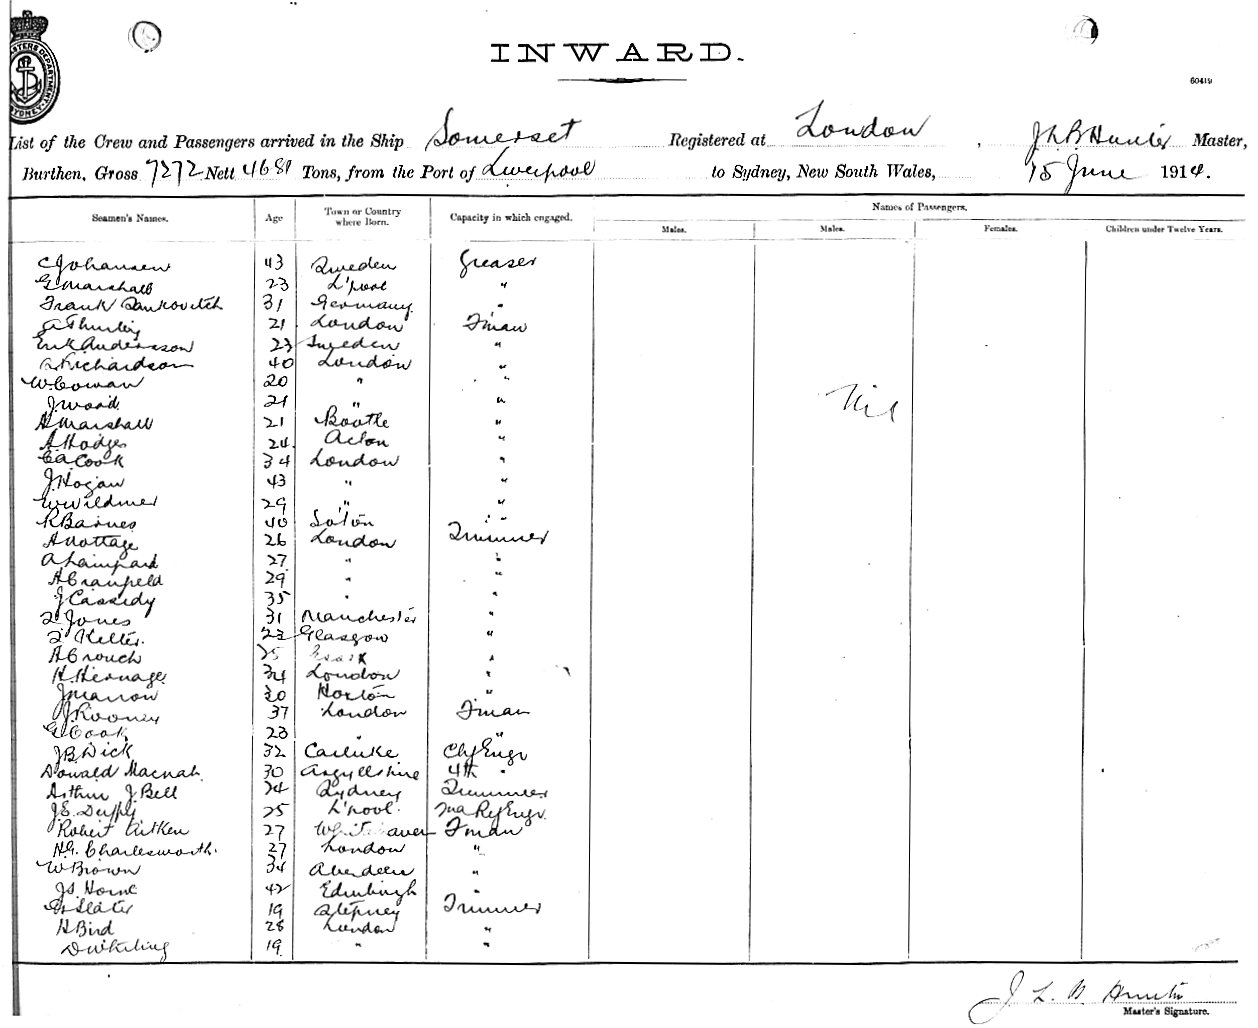 INWARD.
60419
List of the Crew and Passengers arrived in the Ship Somerset Registered at London, J L B Hunter Master,
Burthen, Gross 7272 Nett 4681 Tons, from the Port of Liverpool to Sydney, New South Wales, 15 June 1914.
Seamen's Names. Age Town or Country where Born. Capacity in which engaged. Names of Passengers.
Males. Males. Females. Children under Twelve Years.
C Johansen 43 Sweden Greaser
G Marshall 23 L'pool "
Frank 31 Germany "
21 London F'man
Erik Andersson 23 Sweden "
Richardson 40 London "
W. Cowan 20 " "
J. Wood 21 " "
Nil
H Marshall 21 Bootle "
A Hodges 24 Acton "
C A Cook 34 London "
J Hogan 43 " "
W Wildmer 29 " "
R Barnes 40 So'ton "
A Nottage 26 London Trimmer
A Lampard 27 " "
H Cranfield 29 " "
J Cassidy 35 " "
Jones 31 Manchester "
23 Glasgow "
A Crouch 25 "
H. Hernage 34 London "
J Marrow 30 Hoxton "
J. Rooney 37 London F'man
G Cook 23 " "
J B Dick 32 Carluke Chf Engr
Donald Macnab 30 Argyllshire 4th "
Arthur J Bell 24 Sydney Trimmer
J. E. Duffy 25 L'pool Ref Engr
Robert Aitken 27 F'man
H. G. Charlesworth 27 London "
W Brown 34 Aberdeen "
J S Horne 42 Edinburgh "
Slater 19 Stepney Trimmer
H Bird 28 London "
19 " "
J. L. B. Hunter
Master's Signature.